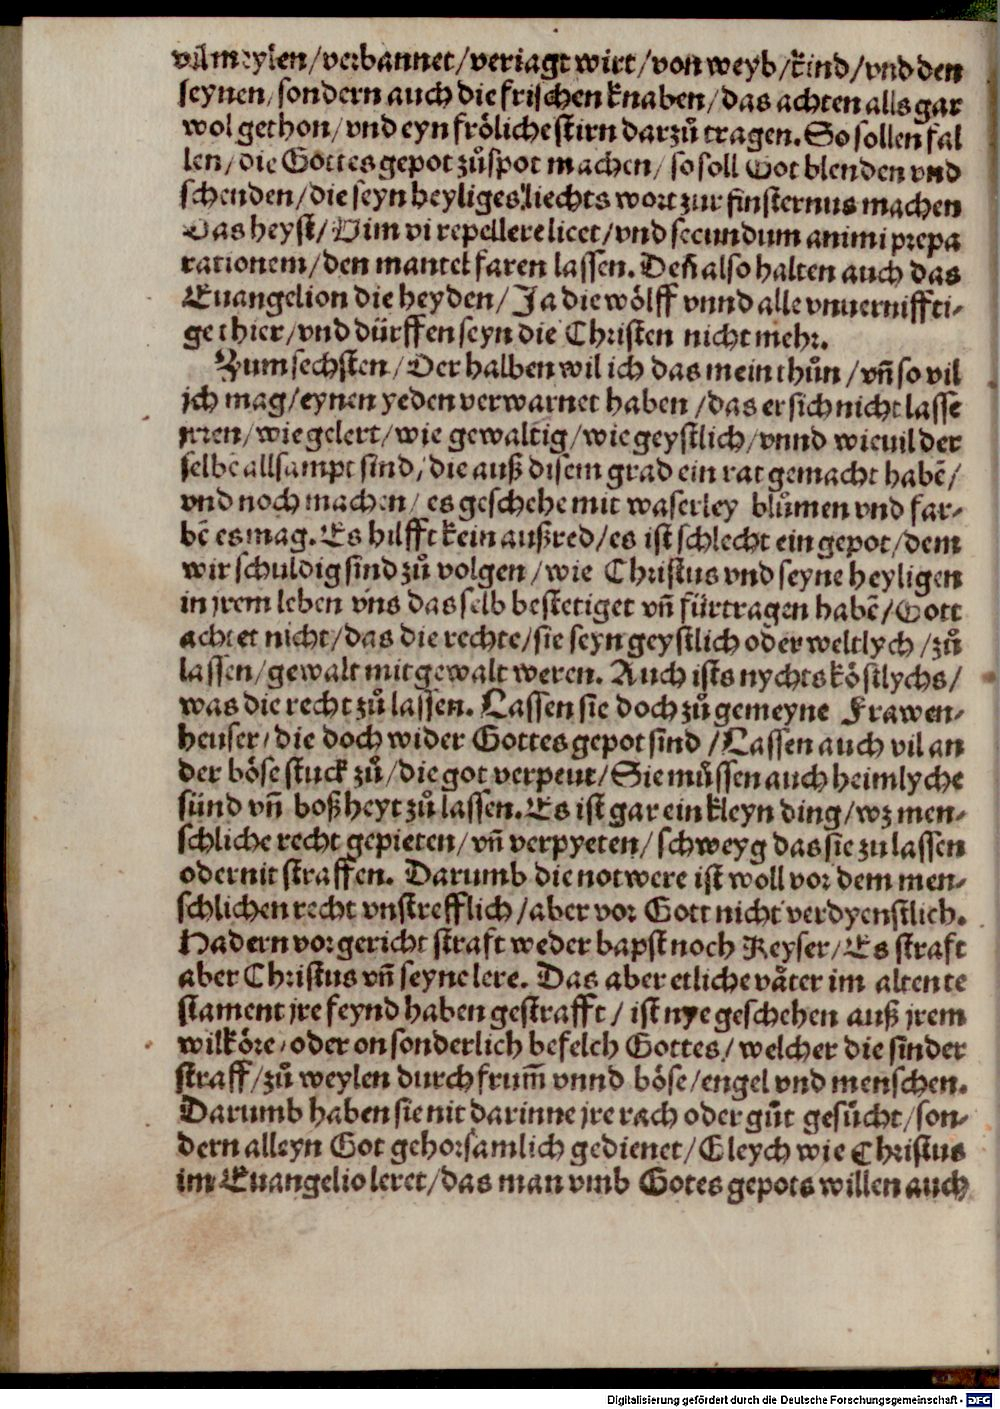 vil meylen/verbannet/veriagt wirt/von weyb/kind/vnd den
seynen/sondern auch die frischen knaben/das achten alls gar
wol gethon/vnd eyn fröliche stirn darzů tragen. So sollen fal
len/die Gottes gepot zůspot machen/so soll Got blenden vnd
schenden/die seyn heyliges liechts wort zur finsternus machen
Das heyst/Vim vi repellere licet/vnd secundum animi prepa
rationem/den mantel faren lassen. Deñ also halten auch das
Euangelion die heyden/Ja die wölff vnnd alle vnuerniffti-
ge thier/vnd dürffen seyn die Christen nicht mehr.
Zum sechsten/Der halben wil ich das mein thůn/vñ so vil
jch mag/eynen yeden verwarnet haben/das er sich nicht lasse
jrren/wie gelert/wie gewaltig/wie geystlich/vnnd wieuil der
selbē allsampt sind/die auß disem grad ein rat gemacht habē/
vnd noch machen/es geschehe mit waserley blůmen vnd far-
bē es mag. Es hilfft kein außred/es ist schlecht ein gepot/dem
wir schuldig sind zů volgen/wie Christus vnd seyne heyligen
in jrem leben vns dasselb bestetiget vñ fürtragen habē/Gott
achtet nicht/das die rechte/sie seyn geystlich oder weltlych/zů
lassen/gewalt mit gewalt weren. Auch ists nychts köstlychs/
was die recht zů lassen. Lassen sie doch zů gemeyne Frawen-
heuser/die doch wider Gottes gepot sind/Lassen auch vil an
der böse stuck zů/die got verpeut/Sie müssen auch heimlyche
sünd vñ boßheyt zů lassen. Es ist gar ein kleyn ding/wz men-
schliche recht gepieten/vñ verpyeten/schweyg das sie zu lassen
oder nit straffen. Darumb die notwere ist woll vor dem men-
schlichen recht vnstrefflich/aber vor Gott nicht verdyenstlich.
Hadern vor gericht straft weder bapst noch Keyser/Es straft
aber Christus vñ seyne lere. Das aber etliche våter im alten te
stament jre feynd haben gestrafft/ist nye geschehen auß jrem
wilköre/oder on sonderlich befelch Gottes/welcher die sinder
straff/zů weylen durch frum̃ vnnd böse/engel vnd menschen.
Darumb haben sie nit darinne jre rach oder gůt gesůcht/son-
dern alleyn Got gehorsamlich gedienet/Gleych wie Christus
im Euangelio leret/das man vmb Gotes gepots willen auch
Digitalisierung gefördert durch die Deutsche Forschungsgemeinschaft - DFG